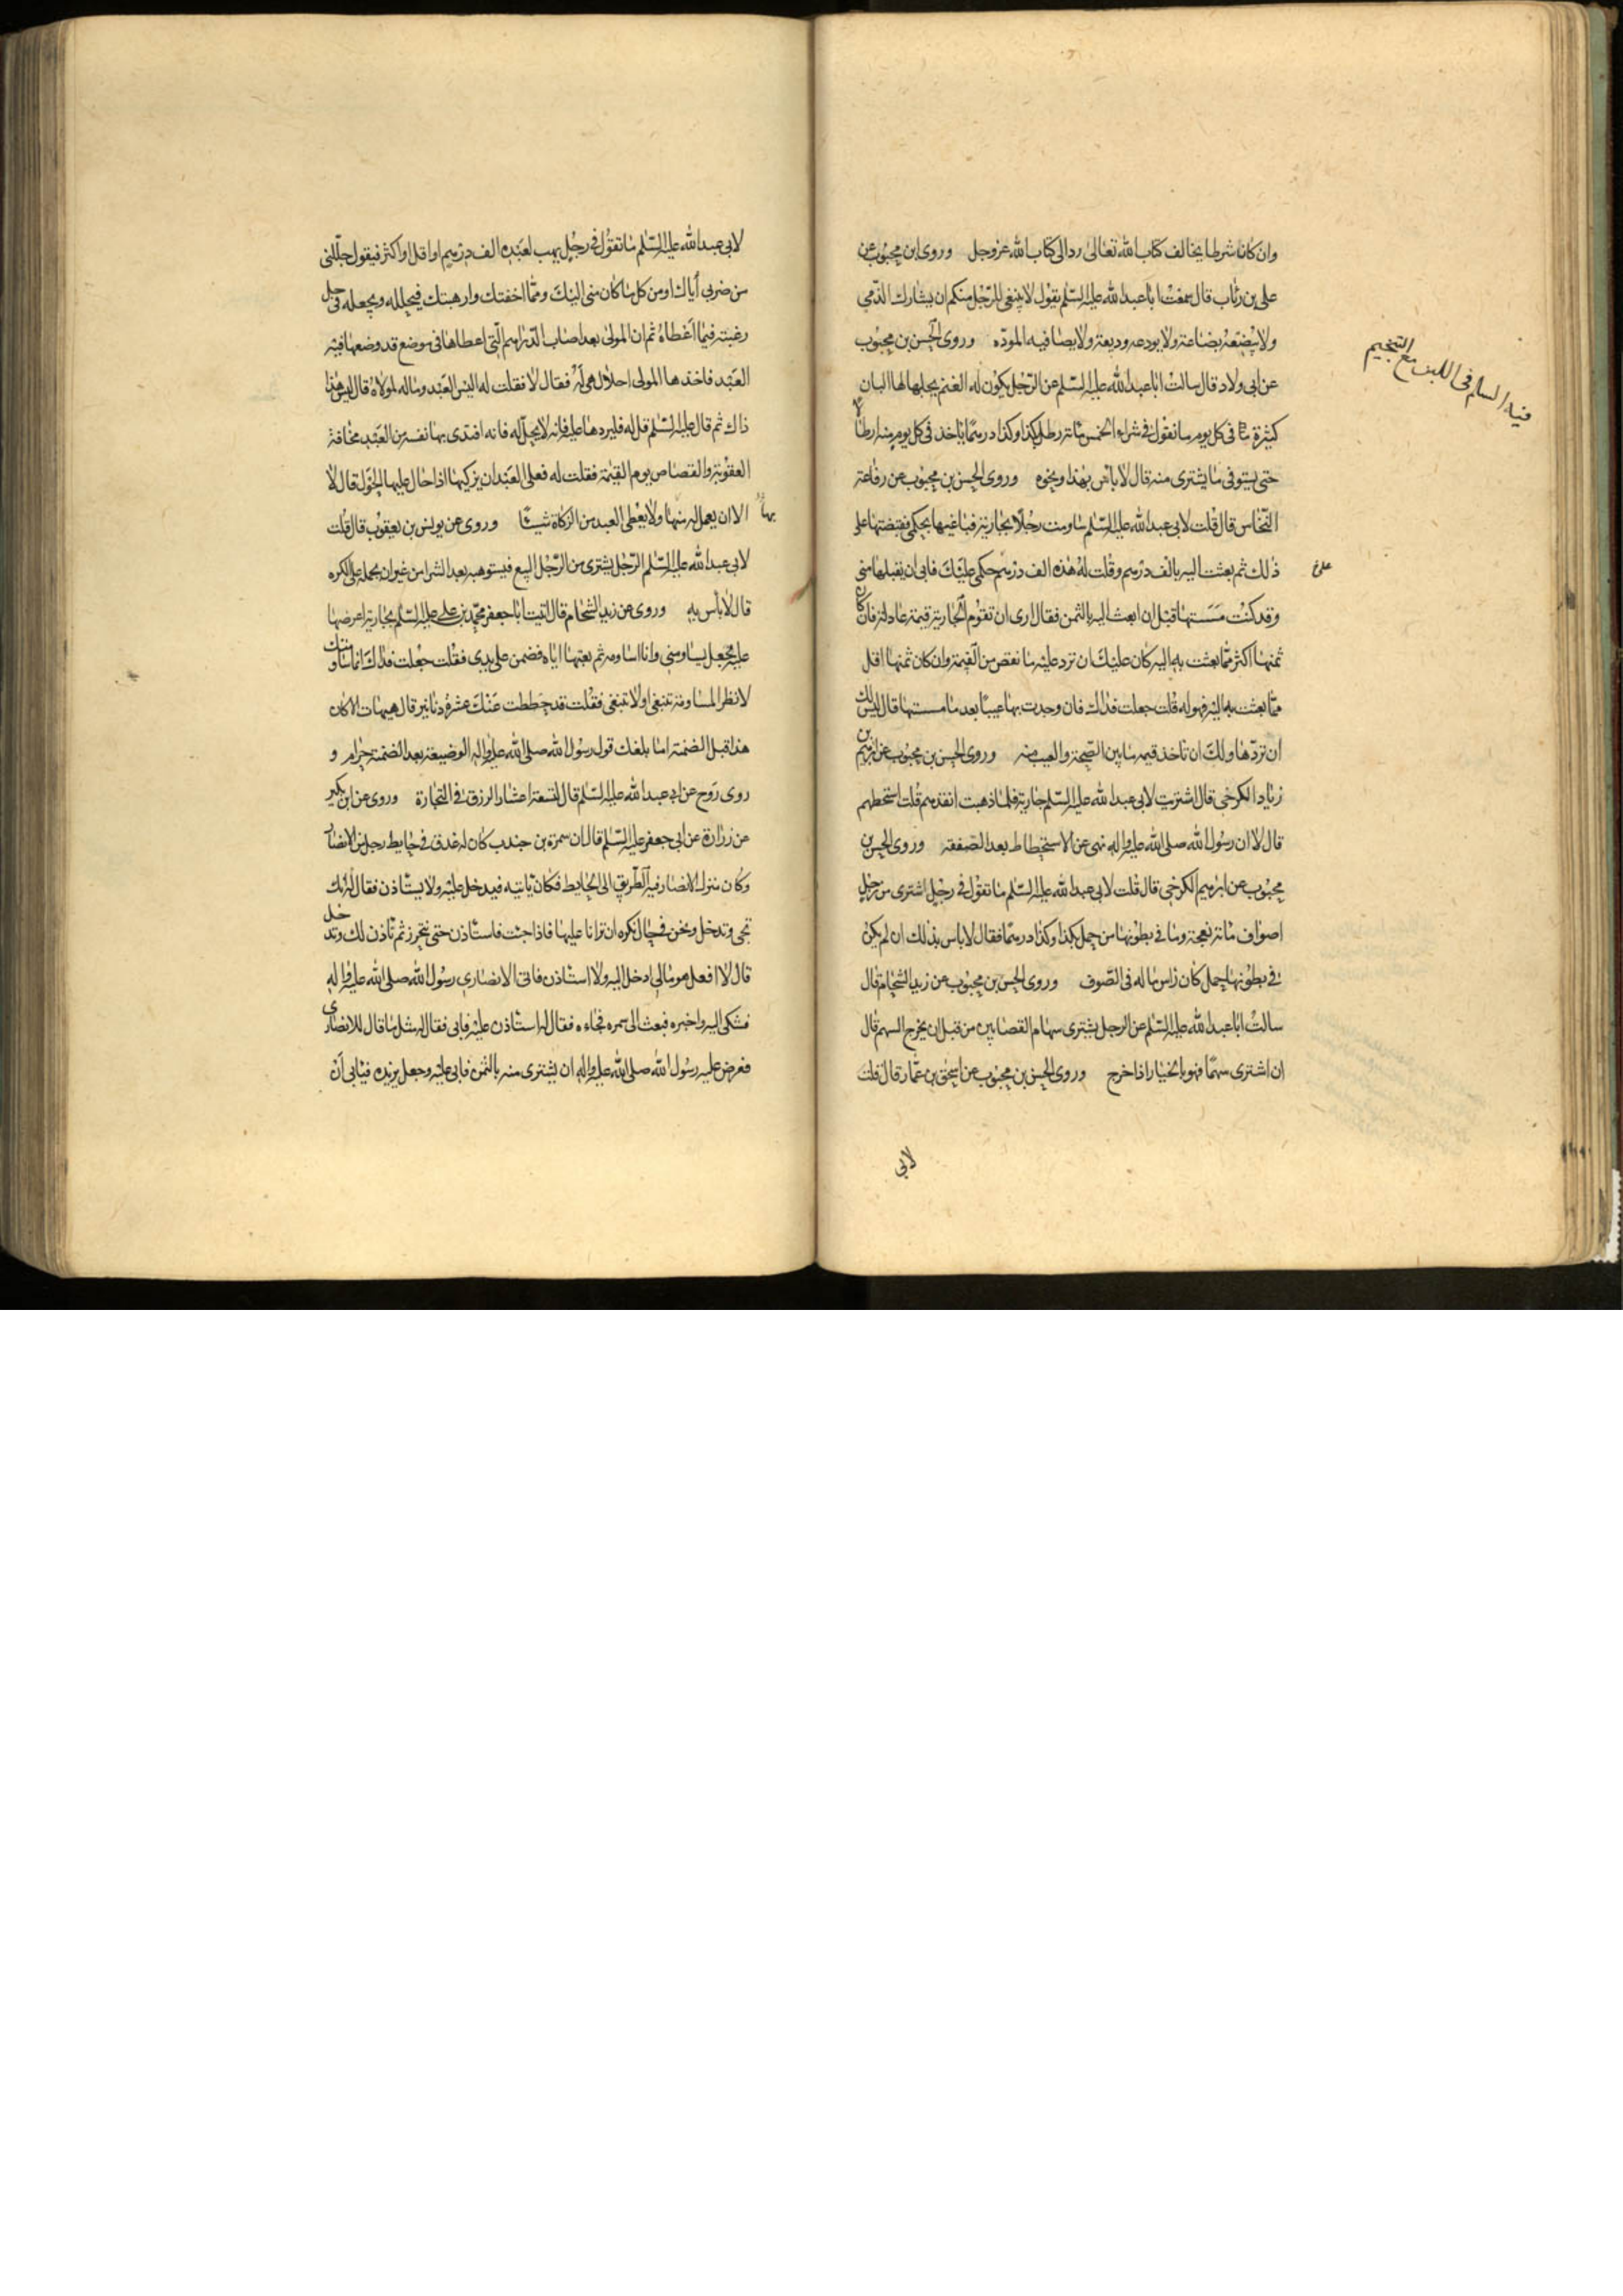 وان كانا شرطا يخالف كتاب الله تعالى رد الى كتاب الله عز وجل وروى ابن محبوب عن
على بن رئاب قال سمعت ابا عبد الله عليه السلم يقول لا ينبغى للرجل منكم ان يشارك الذمي
ولا يبضعه بضاعة ولا يودعه وديعة ولا يصافيه المودة وروى الحسن بن محبوب
عن ابى ولاد قال سالت ابا عبد الله عليه السلم عن الرجل يكون له الغنم يحلبها لها البان
كثيرة فى كل يوم ما تقول فى شراء الخمس مائة رطل بكذا وكذا درهما ياخذ فى كل يوم منه ارطالا
حتى يستوفى ما يشترى منه قال لا باس بهذا ونحوه وروى الحسن بن محبوب عن رفاعة
النخاس قال قلت لابى عبد الله عليه السلم ساومت رجلا بجارية فباعنيها بحكمى فقبضتها على
ذلك ثم بعثت اليه بالف درهم وقلت له هذه الف درهم حكمى عليك فابى ان يقبلها منى
وقد كنت مسستها قبل ان ابعث اليه بالثمن فقال ارى ان تقوم الجارية قيمة عادلة فان كان
ثمنها اكثر مما بعثت به اليه كان عليك ان ترد عليه ما نقص من القيمة وان كان ثمنها اقل
مما بعثت به اليه فهو له قلت جعلت فداك فان وجدت بها عيبا بعد ما مسستها قال ليس لك
ان تردها ولك ان تاخذ قيمة ما بين الصحة والعيب منه وروى الحسن بن محبوب عن ابرهيم بن
زياد الكرخى قال اشتريت لابى عبد الله عليه السلم جارية فلما ذهبت انقدهم قلت استحطهم
قال لا ان رسول الله صلى الله عليه واله نهى عن الاستحطاط بعد الصفقة وروى الحسن بن
محبوب عن ابرهيم الكرخى قال قلت لابى عبد الله عليه السلم ما تقول فى رجل اشترى من رجل
اصواف مائة نعجة وما فى بطونها من حمل بكذا وكذا درهما فقال لا باس بذلك ان لم يكن
فى بطونها حمل كان راس ماله فى الصوف وروى الحسن بن محبوب عن زيد الشحام قال
سالت ابا عبد الله عليه السلم عن الرجل يشترى سهام القصابين من قبل ان يخرج السهم قال
ان اشترى سهما فهو بالخيار اذا خرج وروى الحسن بن محبوب عن اسحق بن عمار قال قلت
لابى
فيه السلم فى اللبن مع التنجيم
لابى عبد الله عليه السلم ما تقول فى رجل يهب لعبده الف درهم او اقل او اكثر فيقول حللنى
من ضربى اياك او من كل ما كان منى اليك ومما اخفتك وارهبتك فيحلله ويجعله فى حل
رغبة فيما اعطاه ثم ان المولى بعد اصاب الدراهم التى اعطاها فى موضع قد وضعها فيه
العبد فاخذها المولى احلال هى له فقال لا فقلت له اليس العبد وماله لمولاه قال ليس هذا
ذاك ثم قال عليه السلم قل له فليردها عليه فانه لا يحل له فانه افتدى بها نفسه من العبد مخافة
العقوبة والقصاص يوم القيمة فقلت له فعلى العبد ان يزكيها اذا حال عليها الحول قال لا
الا ان يعمل له بها ولا يعطى العبد من الزكاة شيئا وروى عن يونس بن يعقوب قال قلت
لابى عبد الله عليه السلم الرجل يشترى من الرجل البيع فيستوهبه بعد الشرا من غير ان يحمله على الكره
قال لا باس به وروى عن زيد الشحام قال اتيت ابا جعفر محمد بن على عليه السلم بجارية اعرضها
عليه فجعل يساومنى وانا اساومه ثم بعتها اياه فضمن على يدى فقلت جعلت فداك انما ساومتك
لانظر المساومة تنبغى او لا تنبغى فقلت قد حططت عنك عشرة دنانير قال هيهات الا كان
هذا قبل الضمنة اما بلغك قول رسول الله صلى الله عليه واله الوضيعة بعد الضمنة حرام و
روى روح عن ابى عبد الله عليه السلم قال تسعة اعشار الرزق فى التجارة وروى عن ابن بكير
عن زرارة عن ابى جعفر عليه السلم قال ان سمرة بن جندب كان له عذق فى حايط رجل من الانصار
وكان منزل الانصارى فيه الطريق الى الحايط فكان ياتيه فيدخل عليه ولا يستاذن فقال انك
تجى وتدخل ونحن فى حال نكره ان ترانا عليها فاذا جئت فاستاذن حتى نتحرز ثم ناذن لك وتدخل
قال لا افعل هو مالى ادخل اليه ولا استاذن فاتى الانصارى رسول الله صلى الله عليه واله
فشكى اليه واخبره فبعث الى سمره فجاءه فقال له استاذن عليه فابى فقال له مثل ما قال للانصارى
فعرض عليه رسول الله صلى الله عليه واله ان يشترى منه بالثمن فابى عليه وجعل يزيده فيابى ان